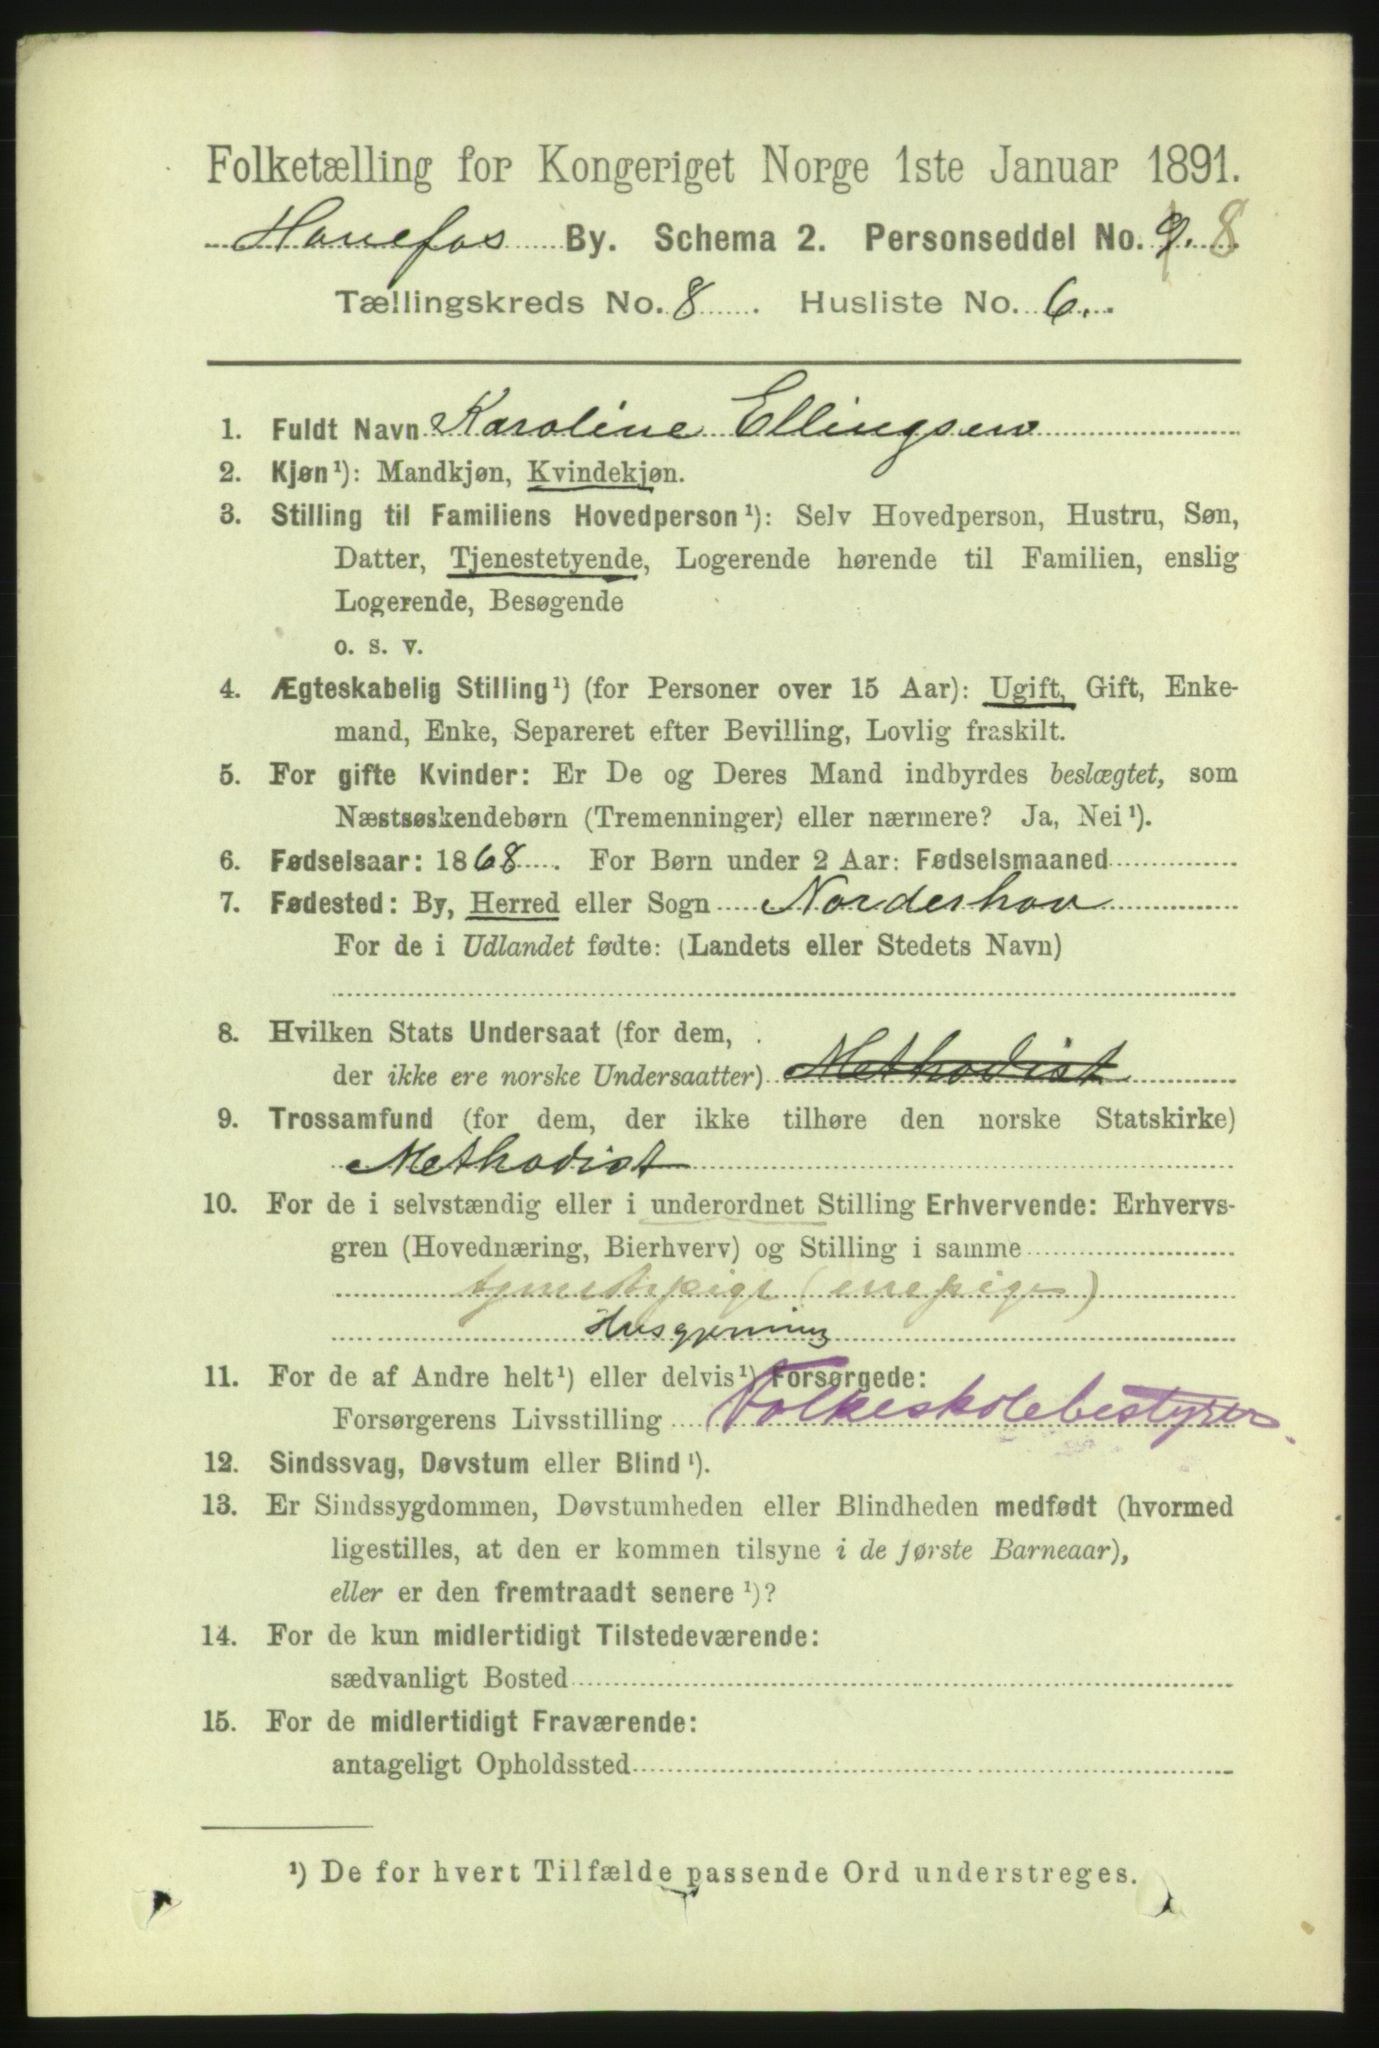 Folketælling for Kongeriget Norge 1ste Januar 1891.
Honefos By. Schema 2. Personseddel No. 9. 8
Tællingskreds No. 8 . Husliste No. 6.
1. Fuldt Navn Karoline Ellingsen
2. Kjøn¹): Mandkjøn, Kvindekjøn.
3. Stilling til Familiens Hovedperson¹): Selv Hovedperson, Hustru, Søn,
Datter, Tjenestetyende, Logerende hørende til Familien, enslig
Logerende, Besøgende
o. s. v.
4. Ægteskabelig Stilling¹) (for Personer over 15 Aar): Ugift, Gift, Enke-
mand, Enke, Separeret efter Bevilling, Lovlig fraskilt.
5. For gifte Kvinder: Er De og Deres Mand indbyrdes beslægtet, som
Næstsøskendebørn (Tremenninger) eller nærmere? Ja, Nei¹).
6. Fødselsaar: 1868 . For Børn under 2 Aar: Fødselsmaaned
7. Fødested: By, Herred eller Sogn Norderhov
For de i Udlandet fødte: (Landets eller Stedets Navn)
8. Hvilken Stats Undersaat (for dem,
der ikke ere norske Undersaatter) Methodist
9. Trossamfund (for dem, der ikke tilhøre den norske Statskirke)
Methodist
10. For de i selvstændig eller i underordnet Stilling Erhvervende: Erhvervs-
gren (Hovednæring, Bierhverv) og Stilling i samme
Husgjerning
11. For de af Andre helt¹) eller delvis¹) Forsørgede:
Forsørgerens Livsstilling Folkeskolebestyrer.
12. Sindssvag, Døvstum eller Blind¹).
13. Er Sindssygdommen, Døvstumheden eller Blindheden medfødt (hvormed
ligestilles, at den er kommen tilsyne i de første Barneaar),
eller er den fremtraadt senere¹)?
14. For de kun midlertidigt Tilstedeværende:
sædvanligt Bosted
15. For de midlertidigt Fraværende:
antageligt Opholdssted
¹) De for hvert Tilfælde passende Ord understreges.